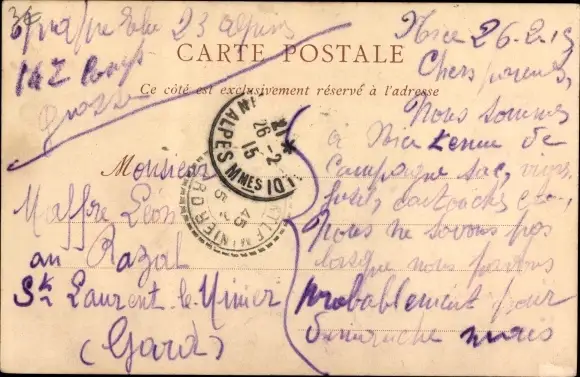 23 alpins
142 Comp
Grasse
CARTE POSTALE
Ce côté est exclusivement réservé à l'adresse
Monsieur
Maffre Léon
au Razal
St Laurent-le-Minier
(Gard)
Nice 26-2-15
Chers parents,
Nous sommes
à Nice tenue de
campagne sac, vivres
fusil, cartouches
Nous ne savons pas
lasque nous partons
probablement pour
dimanche mais
26-2
15
ALPES Mmes